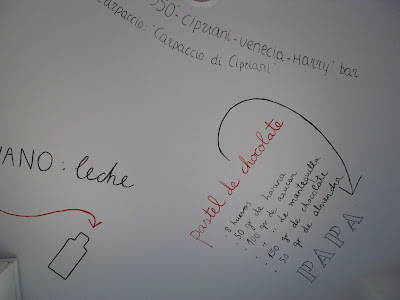 950: Cipriani-Venecia-Harry' bar
Carpaccio: 'Carpaccio di Cipriani'
MANO: leche
pastel de chocolate
8 huevos
50 gr de harina
100 gr de azúcar
" " de mantequilla
150 gr de chocolate
50 gr de almendra
PAPA